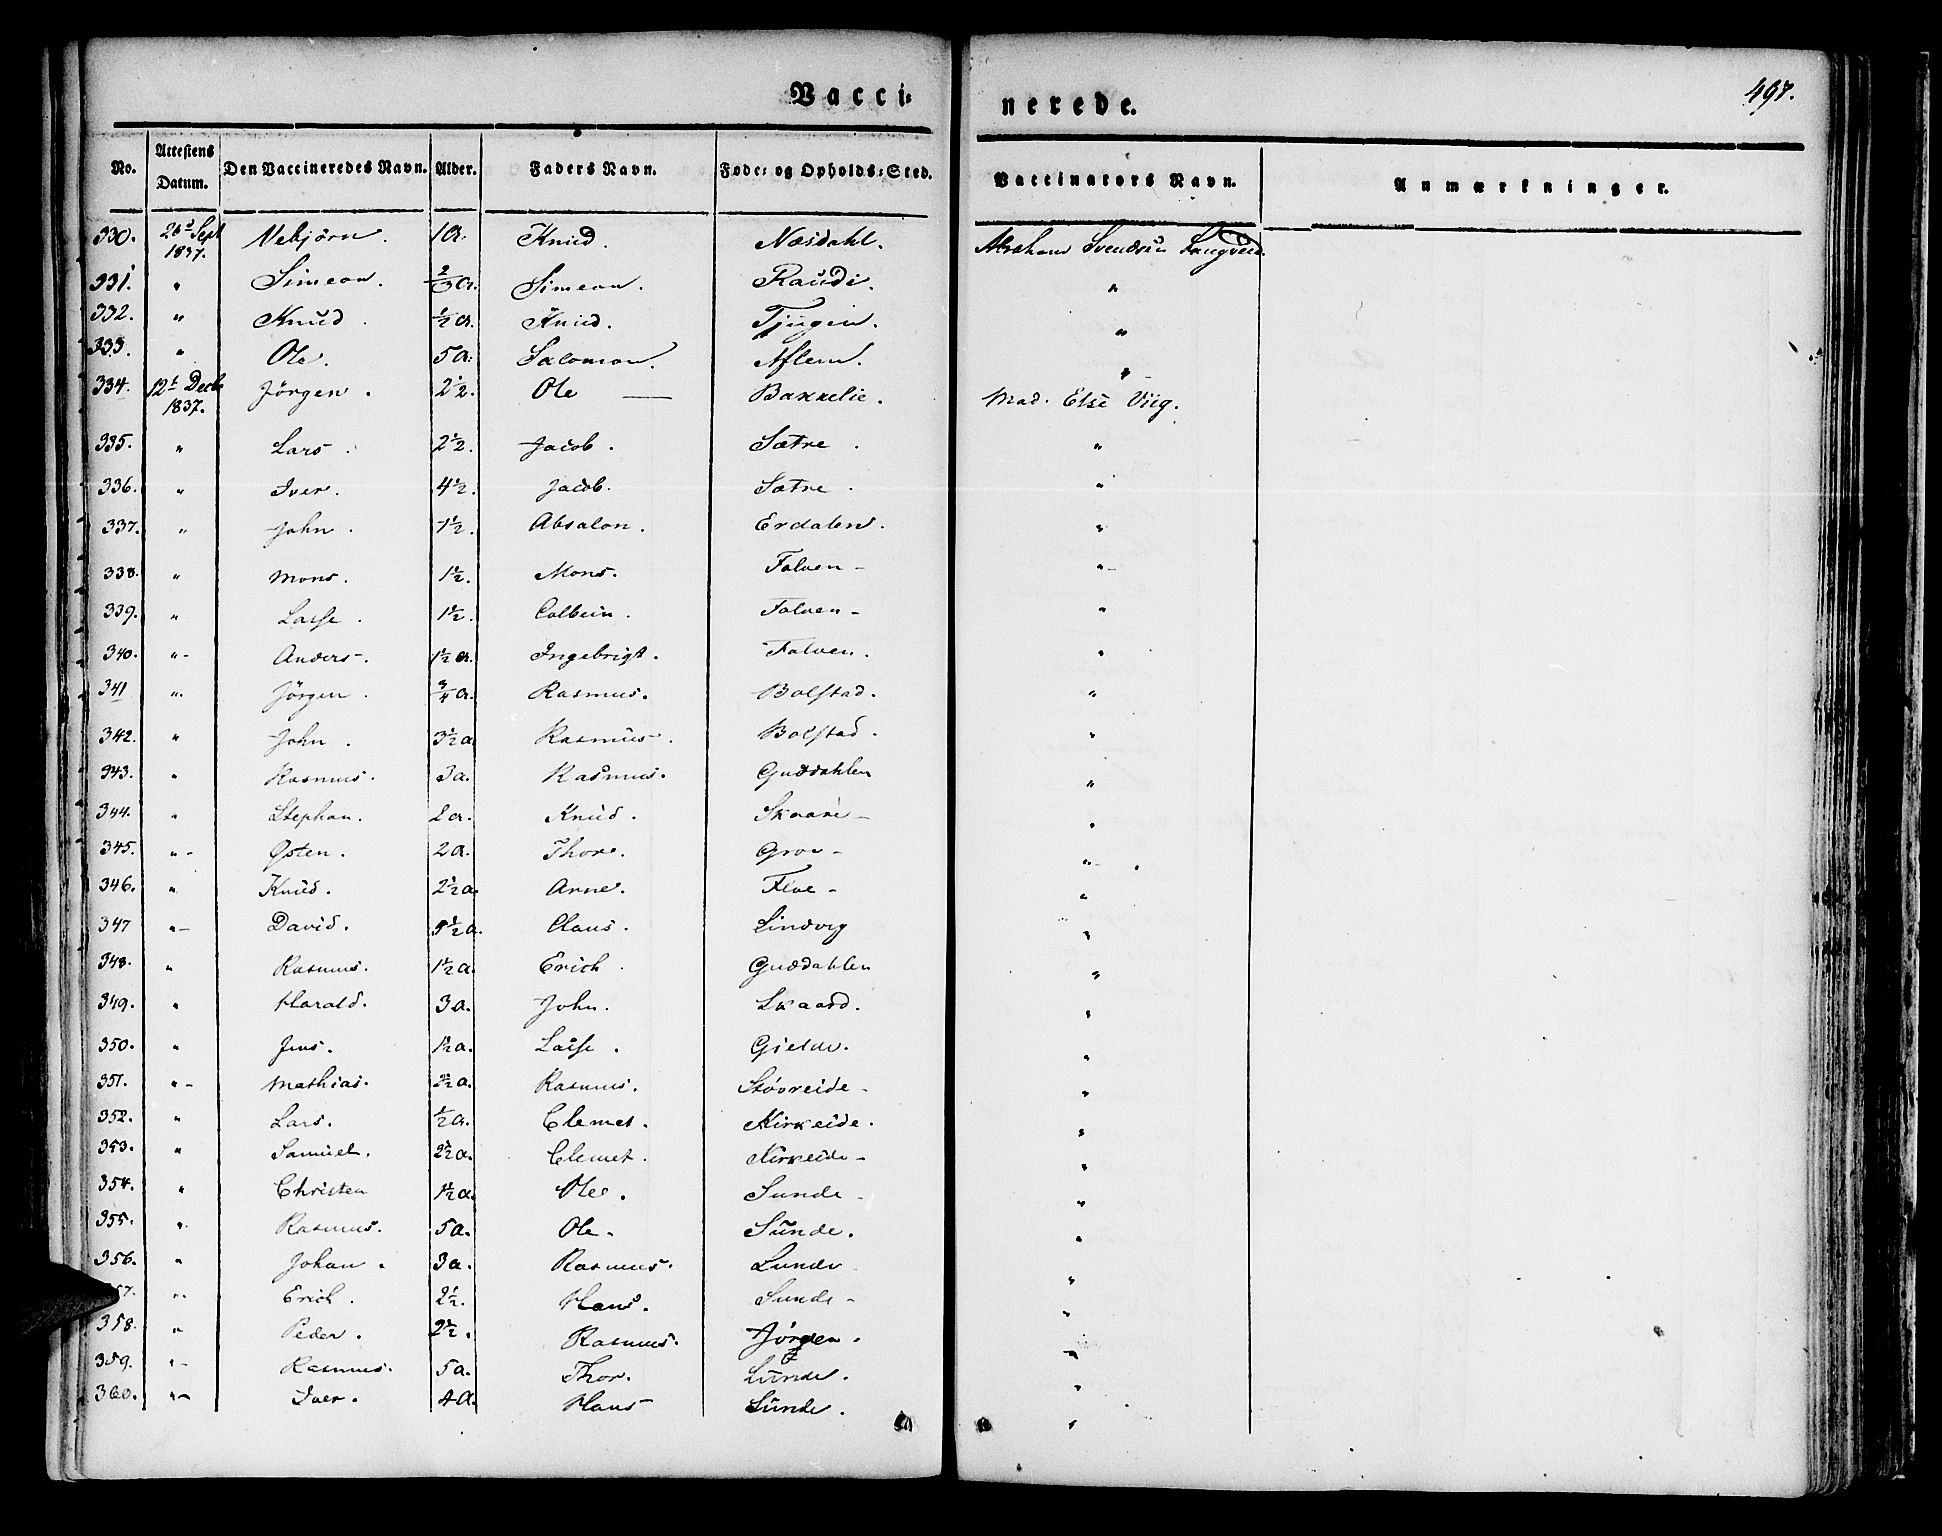 Vacci-
nerede.
497.
No. Attestens Datum. Den Vaccineredes Navn. Alder. Faders Navn. Føde- og Opholds-Sted. Vaccinators Navn. Anmærkninger.
330. 26d Sept 1837. Nebjörn. 1a. Knud. Næsdahl. Abraham Svendsen Langveid.
331. " Simeon. 2/3a. Simeon. Raudi. "
332. " Knud. 1/2a. Knud. Tjugen. "
333. " Ole. 5a. Salomon. Aflem. "
334. 12t Decbr 1837. Jörgen. 2 1/2. Ole — Bakkelie. Mad. Else Viig.
335. " Lars. 2 1/2. Jacob. Sætre. "
336. " Iver. 4 1/2. Jacob. Sætre. "
337. " John. 1 1/2. Absalon. Erdalen. "
338. " Mons. 1 1/2. Mons. Folven - "
339. " Lasse. 1 1/2. Colbein. Folven - "
340. " - Anders. 1 1/2 a. Ingebrigt. Folven. "
341 " Jörgen. 3/4 a. Rasmus. Bolstad. "
342. " John. 3 1/2 a Rasmus. Bolstad. "
343. " Rasmus. 3a. Rasmus. Guddahlen "
344. " Stephan. 2a. Knud. Skaare - "
345. " - Østen. 2a. Thore. Grov - "
346. " Knud. 2 1/2 a. Arne. Flve - "
347 " - David. 1/2 a. Claus. Lindvig "
348. " Rasmus. 1 1/2 a. Erich. Guddahlen "
349. " Harald. 3a. John. Skaard. "
350. " Jens. 1 1/2 a. Lasse. Gielde. "
351. " - Mathias. 2 1/2 a. Rasmus. Støvreide - "
352. " Lars. 1/2 a. Clemet. Kirkeide. "
353. " Samuel. 2 1/2 a. Clemet. Kirkeide - "
354. " Christen 1 1/2 a. Ole. Sunde - "
355. " Rasmus. 5a. Ole. Sunde. "
356. " Johan. 3a. Rasmus. Lunde "
357. " Erich. 2 1/2. Hans. Sunde - "
358. " Peder. 2 1/2. Rasmus. Jörgen. "
359. " - Rasmus. 5a. Thor. Lunde. "
360. " - Iver. 4a. Hans Sunde. "